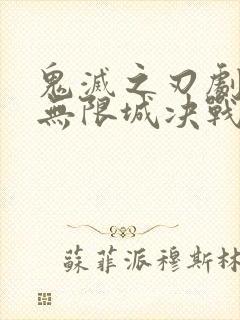 鬼滅之刃劇
無限城决戰
蘇菲派穆斯林